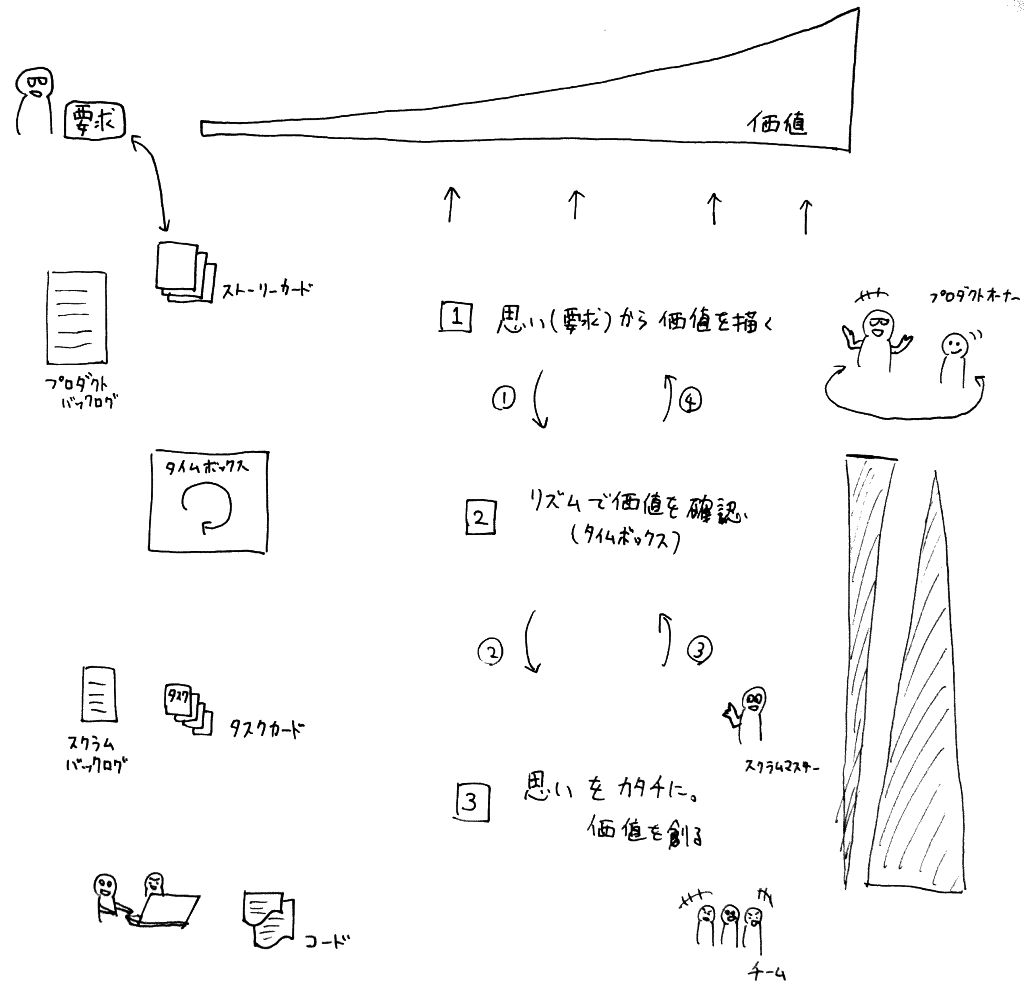 要求
価値
ストーリーカード
プロダクト
バックログ
1 思い(要求)から価値を描く
プロダクトオーナー
① ④
タイムボックス
2 リズムで価値を確認
(タイムボックス)
② ③
タスク
タスクカード
スクラム
バックログ
スクラムマスター
3 思いをカタチに。
価値を創る
コード
チーム